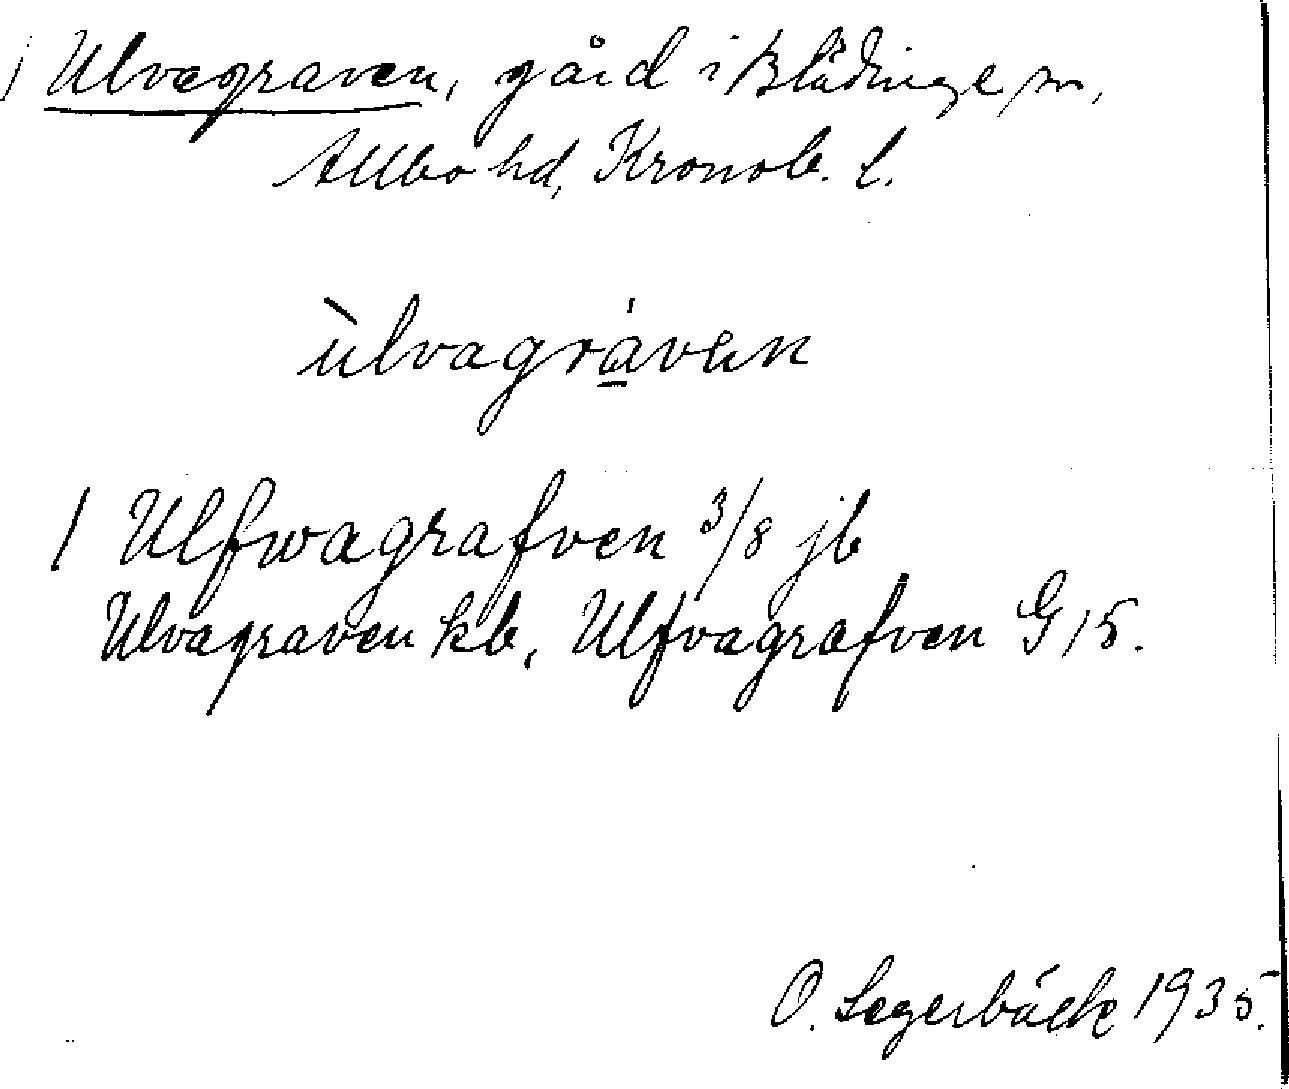 / Ulvagraven, gård i Blädinge sn,
Allbo hd, Kronob. l.
ùlvagrávɘn
/ Ulfwagrafven 3/8 jb
Ulvagraven kb, Ulfvagrafven G 15.
O. Segerbäck 1935.